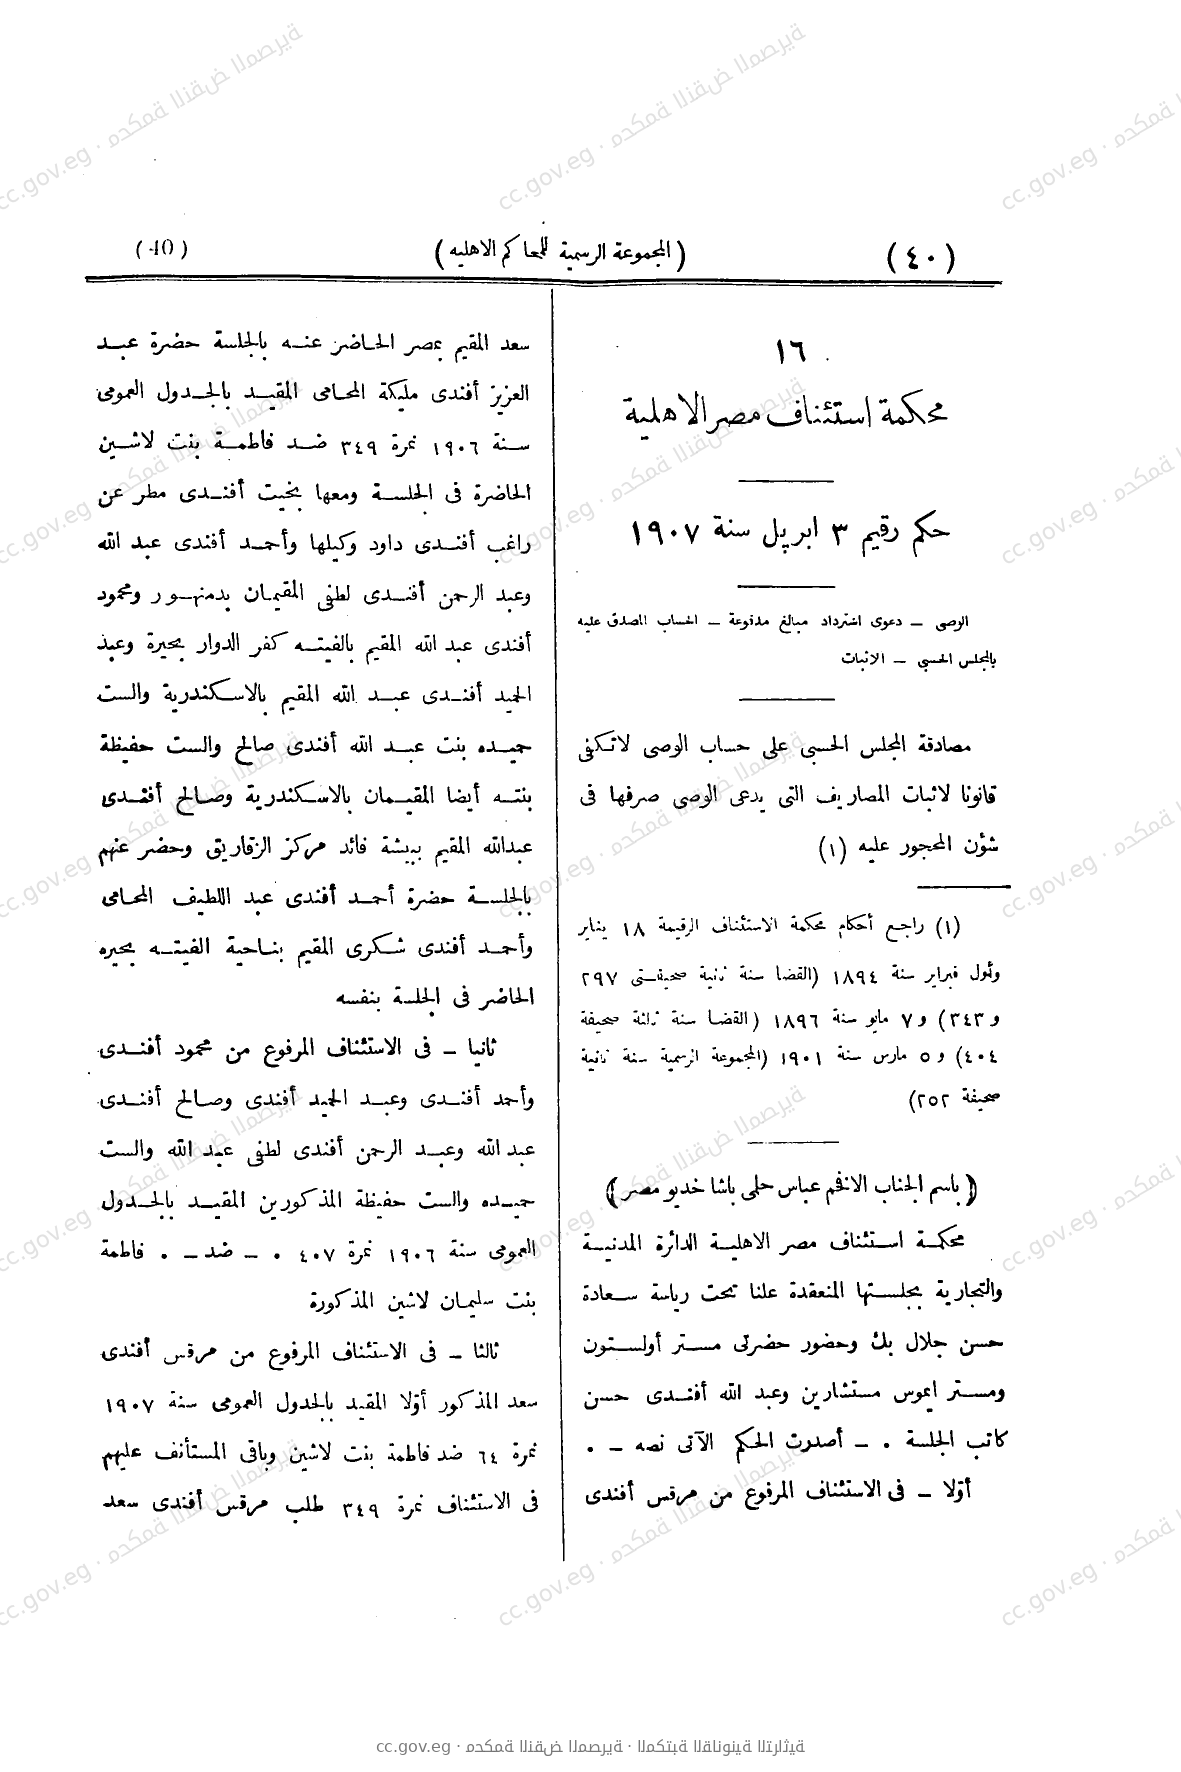 (٤٠)
(المجموعة الرسمية للمحاكم الاهليه)
(40)
١٦
محكمة استئناف مصر الاهلية
حكم رقيم ٣ ابريل سنة ١٩٠٧
الوصى ــ دعوى استرداد مبالغ مدفوعة ــ الحساب المصدق عليه
بالمجلس الحسبى ــ الاثبات
مصادقة المجلس الحسبى على حساب الوصى لاتكفى
قانونا لاثبات المصاريف التى يدعى الوصى صرفها فى
شؤن المحجور عليه (١)
(١) راجع أحكام محكمة الاستئناف الرقيمة ١٨ يناير
وأول فبراير سنة ١٨٩٤ (القضا سنة ثانية صحيفتى ٢٩٧
و ٣٤٣) و ٧ مايو سنة ١٨٩٦ (القضا سنة ثالثة صحيفة
٤٠٤) و ٥ مارس سنة ١٩٠١ (المجموعة الرسمية سنة ثانية
صحيفة ٢٥٢)
(باسم الجناب الافخم عباس حلمى باشا خديو مصر)
محكمة استئناف مصر الاهلية الدائرة المدنية
والتجارية بجلستها المنعقدة علنا تحت رياسة سعادة
حسن جلال بك وحضور حضرتى مستر أولستون
ومستر ايموس مستشارين وعبد الله أفندى حسن
كاتب الجلسة . ــ أصدرت الحكم الآتى نصه ــ .
أوّلا ــ فى الاستئناف المرفوع من مرقس أفندى
سعد المقيم بمصر الحاضر عنه بالجلسة حضرة عبد
العزيز أفندى مليكة المحامى المقيد بالجدول العمومى
سنة ١٩٠٦ نمرة ٣٤٩ ضد فاطمة بنت لاشين
الحاضرة فى الجلسة ومعها بخيت أفندى مطر عن
راغب أفندى داود وكيلها وأحمد أفندى عبد الله
وعبد الرحمن أفندى لطفى المقيمان بدمنهور ومحمود
أفندى عبد الله المقيم بالفيته كفر الدوار بحيرة وعبد
الحميد أفندى عبد الله المقيم بالاسكندرية والست
حميده بنت عبد الله أفندى صالح والست حفيظة
بنته أيضا المقيمان بالاسكندرية وصالح أفندى
عبدالله المقيم ببيشة قائد مركز الزقازيق وحضر عنهم
بالجلسة حضرة أحمد أفندى عبد اللطيف المحامى
وأحمد أفندى شكرى المقيم بناحية الفيته بحيره
الحاضر فى الجلسة بنفسه
ثانيا ــ فى الاستئناف المرفوع من محمود أفندى
وأحمد أفندى وعبد الحميد أفندى وصالح أفندى
عبد الله وعبد الرحمن أفندى لطفى عبد الله والست
حميده والست حفيظة المذكورين المقيد بالجدول
العمومى سنة ١٩٠٦ نمرة ٤٠٧ . ــ ضد ــ . فاطمة
بنت سليمان لاشين المذكورة
ثالثا ــ فى الاستئناف المرفوع من مرقس أفندى
سعد المذكور أوّلا المقيد بالجدول العمومى سنة ١٩٠٧
نمرة ٦٤ ضد فاطمة بنت لاشين وباقى المستأنف عليهم
فى الاستئناف نمرة ٣٤٩ طلب مرقس أفندى سعد
cc.gov.eg · محكمة النقض المصرية · المكتبة القانونية التراثية